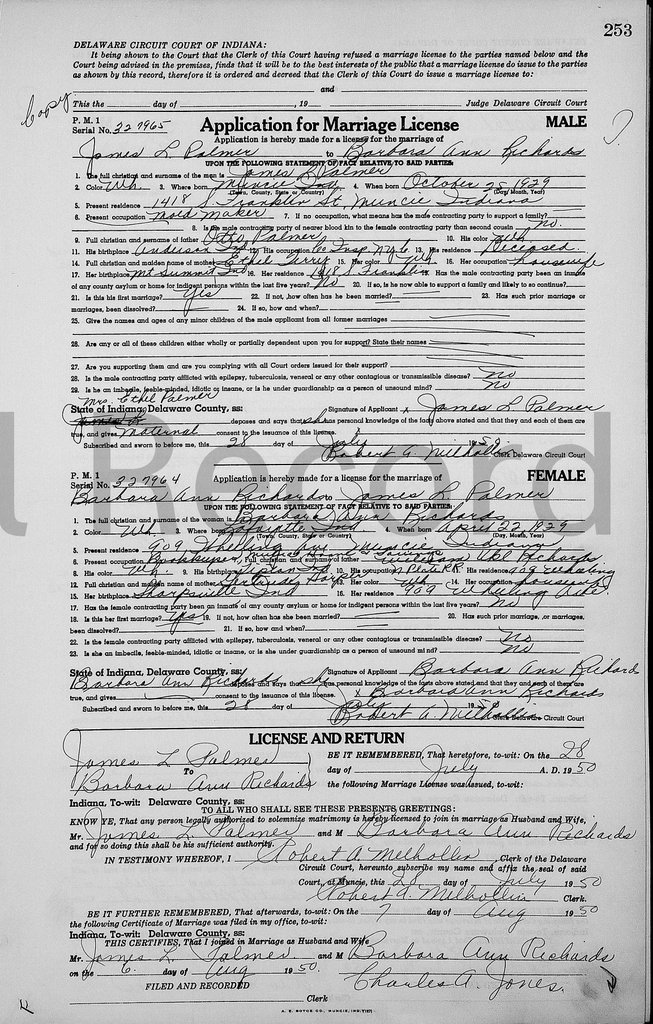 253
DELAWARE CIRCUIT COURT OF INDIANA:
It being shown to the Court that the Clerk of this Court having refused a marriage license to the parties named below and the
Court being advised in the premises, finds that it will be to the best interests of the public that a marriage license do issue to the parties
as shown by this record, therefore it is ordered and decreed that the Clerk of this Court do issue a marriage license to:
and
Copy
This the day of , 19 Judge Delaware Circuit Court
P. M. 1
Serial No. 327965 Application for Marriage License MALE
Application is hereby made for a license for the marriage of
James L. Palmer to Barbara Ann Richards
UPON THE FOLLOWING STATEMENT OF FACT RELATIVE TO SAID PARTIES:
1. The full christian and surname of the man is James L Palmer
2. Color Wh. 3. Where born Muncie Ind 4. When born October 25, 1929
(Town, County, State or Country) (Day, Month, Year)
5. Present residence 1418 S. Franklin St, Muncie Indiana
6. Present occupation Mold Maker 7. If no occupation, what means has the male contracting party to support a family?
8. Is the male contracting party of nearer blood kin to the female contracting party than second cousin no.
9. Full christian and surname of father Otto Palmer 10. His color Wh
11. His birthplace Anderson Ind 12. His occupation 13. His residence Deceased.
14. Full christian and maiden name of mother Ethel 15. Her color Wh 16. Her occupation housewife
17. Her birthplace Mt Summit Ind 18. Her residence 1418 S. Franklin 19. Has the male contracting party been an inmate
of any county asylum or home for indigent persons within the last five years? No 20. If so, is he now able to support a family and likely to so continue?
21. Is this his first marriage? Yes 22. If not, how often has he been married? 23. Has such prior marriage or
marriages, been dissolved? 24. If so, how and when?
25. Give the names and ages of any minor children of the male applicant from all former marriages
26. Are any or all of these children either wholly or partially dependent upon you for support? State their names
27. Are you supporting them and are you complying with all Court orders issued for their support?
28. Is the male contracting party afflicted with epilepsy, tuberculosis, venereal or any other contagious or transmissible disease? No
29. Is he an imbecile, feeble-minded, idiotic or insane, or is he under guardianship as a person of unsound mind? No
Mrs. Ethel Palmer
State of Indiana, Delaware County, ss: Signature of Applicant x James L Palmer
deposes and says that she has personal knowledge of the facts above stated and that they and each of them are
true, and gives maternal consent to the issuance of the license.
Subscribed and sworn to before me, this 28 day of July 1950
Robert A. Melhollin Clerk Delaware Circuit Court
t Record
P. M. 1
Serial No. 327964 Application is hereby made for a license for the marriage of FEMALE
Barbara Ann Richards to James L. Palmer
UPON THE FOLLOWING STATEMENT OF FACT RELATIVE TO SAID PARTIES:
1. The full christian and surname of the woman is Barbara Ann Richards
2. Color Wh. 3. Where born Lafayette Ind 4. When born April 22 1929
(Town, County, State or Country) (Day, Month, Year)
5. Present residence 909 Wheeling Ave Muncie Indiana
6. Present occupation Bookkeeper 7. Full christian and surname of father William Richards
8. His color Wh 9. His birthplace Ind 10. His occupation 11. His residence 909 Wheeling
12. Full christian and maiden name of mother Gertrude Harper 13. Her color Wh 14. Her occupation housewife
15. Her birthplace Sharpsville Ind 16. Her residence 909 Wheeling Ave.
17. Has the female contracting party been an inmate of any county asylum or home for indigent persons within the last five years? No
18. Is this her first marriage? Yes 19. If not, how often has she been married? 20. Has such prior marriage, or marriages,
been dissolved? 21. If so, how and when?
22. Is the female contracting party afflicted with epilepsy, tuberculosis, venereal or any other contagious or transmissible disease? No
23. Is she an imbecile, feeble-minded, idiotic or insane, or is she under guardianship as a person of unsound mind? No
State of Indiana, Delaware County, ss: Signature of Applicant Barbara Ann Richards
Barbara Ann Richards deposes and says that she has personal knowledge of the facts above stated and that they and each of them are
true, and gives consent to the issuance of this license. x Barbara Ann Richards
Subscribed and sworn to before me, this 28 day of July 1950
Robert A. Melhollin Clerk Delaware Circuit Court
LICENSE AND RETURN
James L Palmer BE IT REMEMBERED, That heretofore, to-wit: On the 28
To day of July A. D. 1950
Barbara Ann Richards the following Marriage License was issued, to-wit:
Indiana, To-wit: Delaware County, ss:
TO ALL WHO SHALL SEE THESE PRESENTS GREETINGS:
KNOW YE, That any person legally authorized to solemnize matrimony is hereby licensed to join in marriage as Husband and Wife,
Mr. James L Palmer and M Barbara Ann Richards
and for so doing this shall be his sufficient authority.
IN TESTIMONY WHEREOF, I Robert A. Melhollin , Clerk of the Delaware
Circuit Court, hereunto subscribe my name and affix the seal of said
Court, at Muncie, this 28 day of July 1950
Robert A. Melhollin Clerk.
BE IT FURTHER REMEMBERED, That afterwards, to-wit: On the 7 day of Aug 1950
the following Certificate of Marriage was filed in my office, to-wit:
Indiana, To-wit: Delaware County, ss:
THIS CERTIFIES, That I joined in Marriage as Husband and Wife
Mr. James L. Palmer and M Barbara Ann Richards
on the 6. day of Aug 1950. Charles A. Jones.
FILED AND RECORDED
Clerk
A. E. BOYCE CO., MUNCIE, IND.